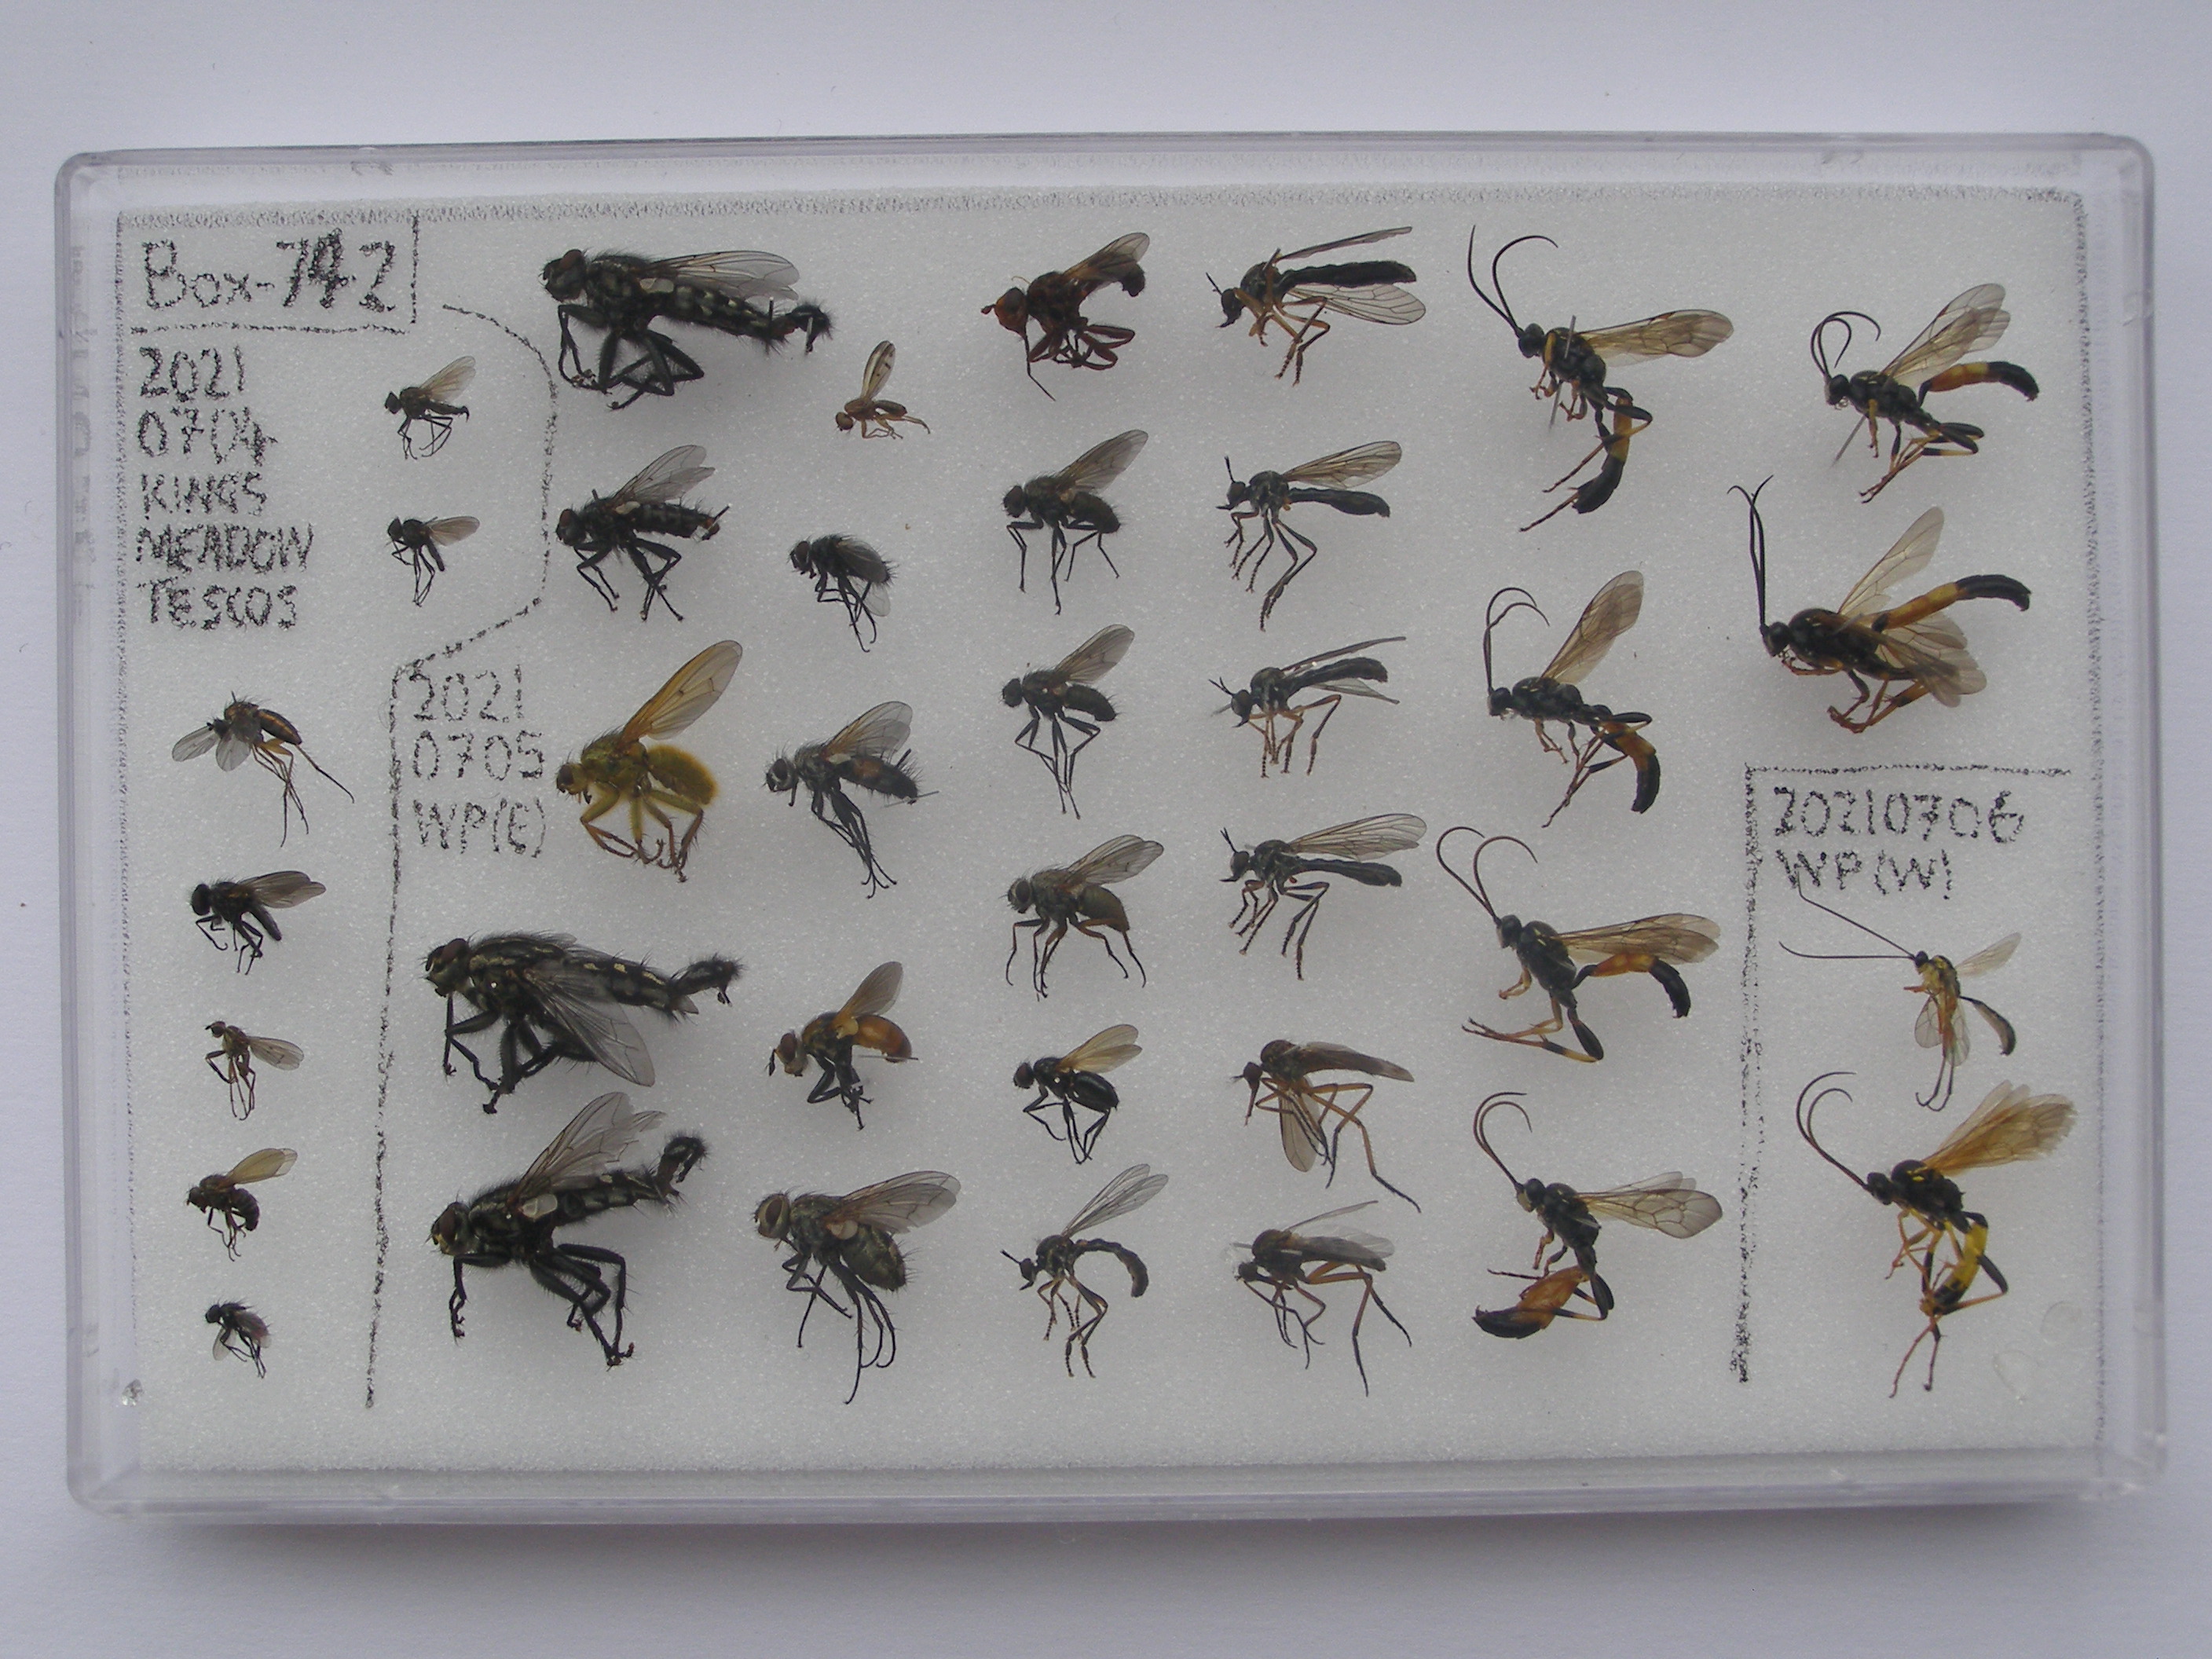 Box-742
2021
0704
KINGS
MEADOW
TESCOS
2021
0705
WP(E)
20210706
WP(W)